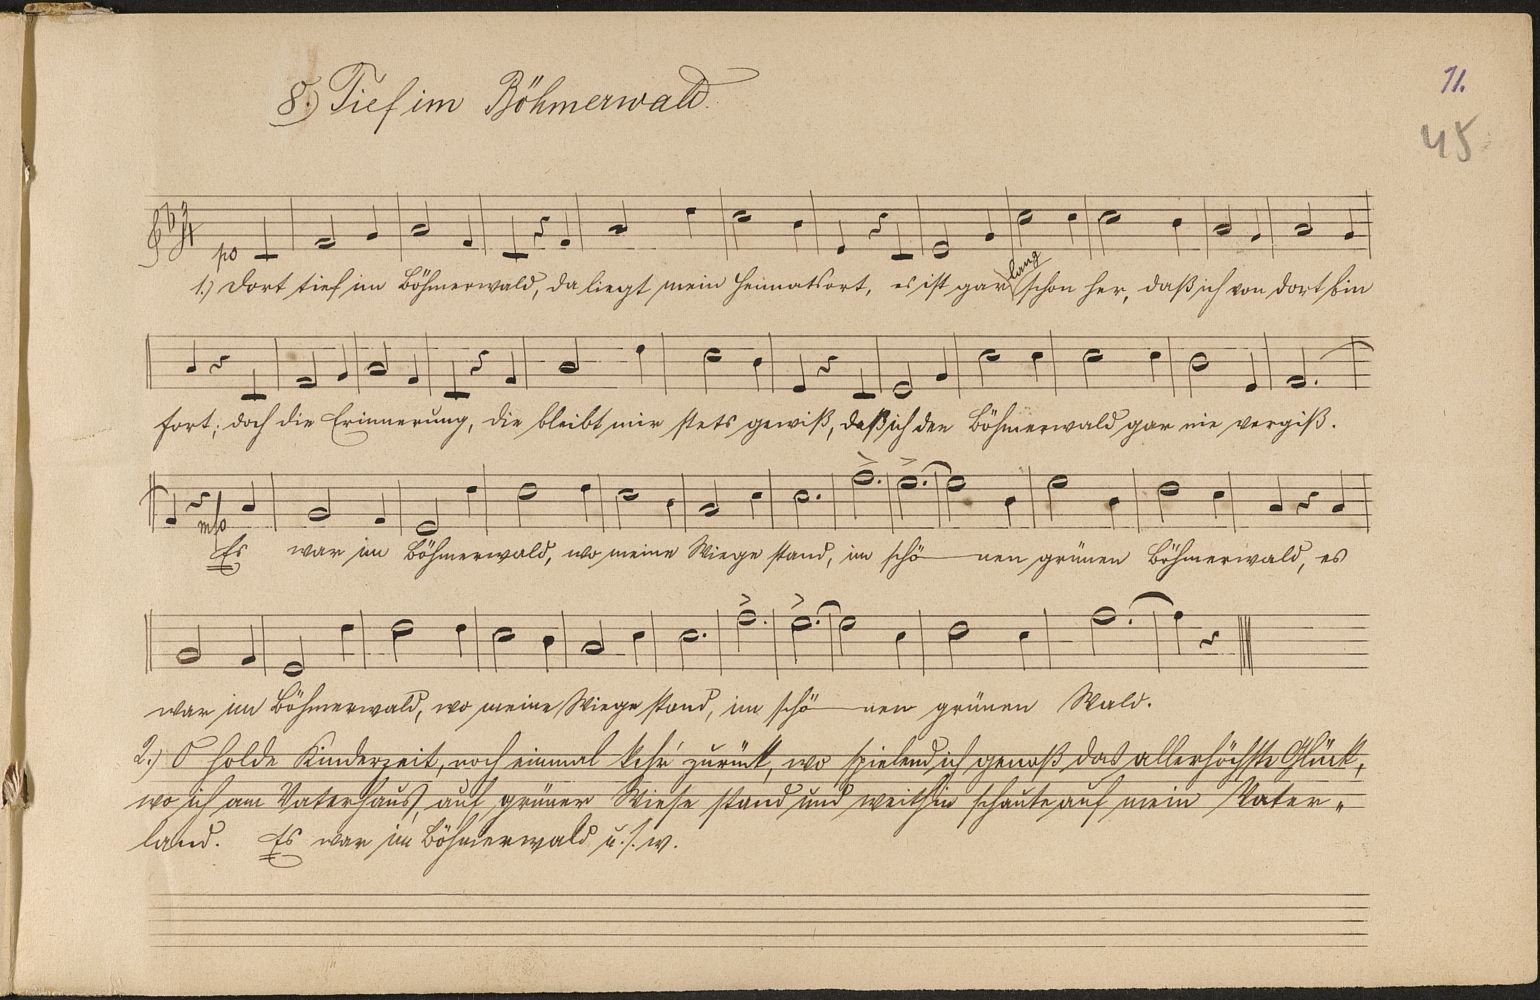 8.) Tief im Böhmerwald.
11.
45
po
1.) Dort tief im Böhmerwald, da liegt mein Heimatsort, es ist gar lang schon her, daß ich von dort bin
fort; doch die Erinnerung, die bleibt mir stets gewiß, daß ich den Böhmerwald gar nie vergiß.
mfo
Es war im Böhmerwald, wo meine Wiege stand, im schö—nen grünen Böhmerwald, es
war im Böhmerwald, wo meine Wiege stand, im schö—nen grünen Wald.
2.) O holde Kinderzeit, noch einmal kehr' zurück, wo spielend ich genoß das allerhöchste Glück,
wo ich am Vaterhaus, auf grüner Wiese stand und weithin schaute auf mein Vater-
land. Es war im Böhmerwald u.s.w.